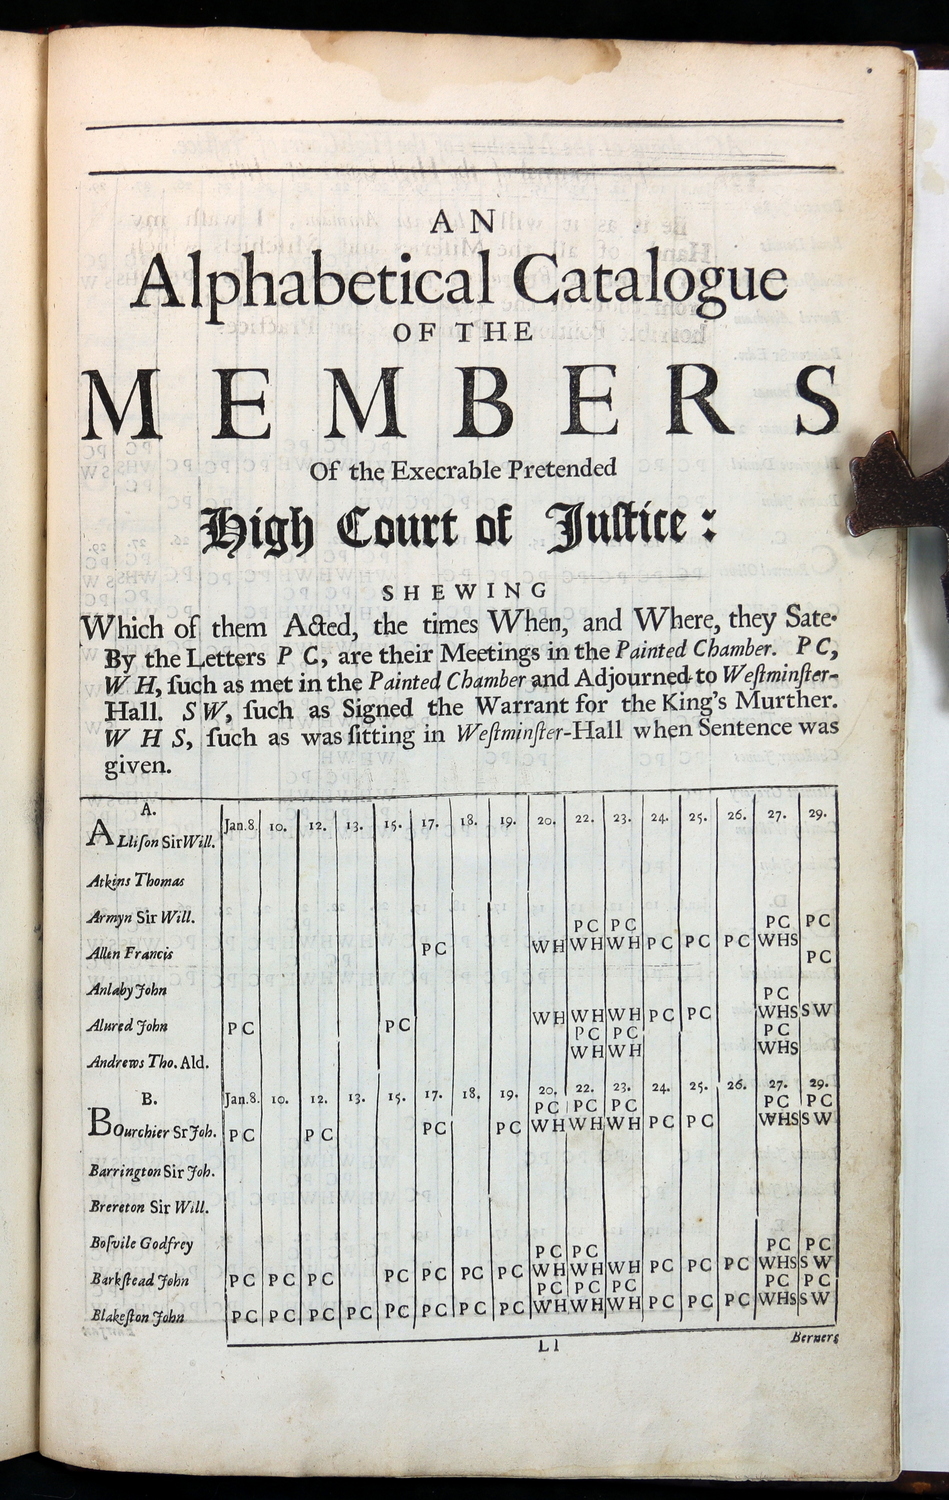 AN
Alphabetical Catalogue
OF THE
MEMBERS
Of the Execrable Pretended
High Court of Juſtice:
SHEWING
Which of them Acted, the times When, and Where, they Sate.
By the Letters P C, are their Meetings in the Painted Chamber. P C,
W H, ſuch as met in the Painted Chamber and Adjourned to Weſtminſter-
Hall. S W, ſuch as Signed the Warrant for the King's Murther.
W H S, ſuch as was ſitting in Weſtminſter-Hall when Sentence was
given.
A. Jan.8. 10. 12. 13. 15. 17. 18. 19. 20. 22. 23. 24. 25. 26. 27. 29.
ALliſon Sir Will.
Atkins Thomas
Armyn Sir Will.
PC PC PC PC
Allen Francis PC WH WH WH PC PC PC WHS
PC
Anlaby John
PC
Alured John PC PC WH WH WH PC PC WHS SW
PC PC PC
Andrews Tho. Ald. WH WH WHS
B. Jan.8. 10. 12. 13. 15. 17. 18. 19. 20. 22. 23. 24. 25. 26. 27. 29.
PC PC PC PC PC
BOurchier Sr Joh. PC PC PC PC WH WH WH PC PC WHS SW
Barrington Sir Joh.
Brereton Sir Will.
Boſvile Godfrey
PC PC PC PC
Barkſtead John PC PC PC PC PC PC PC WH WH WH PC PC PC WHS SW
PC PC PC PC PC
Blakeſton John PC PC PC PC PC PC PC PC WH WH WH PC PC PC WHS SW
Ll Berners